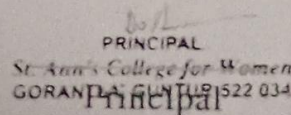 PRINCIPAL
St. Ann's College for Women
GORANTLA GUNTUR 522 034
Principal